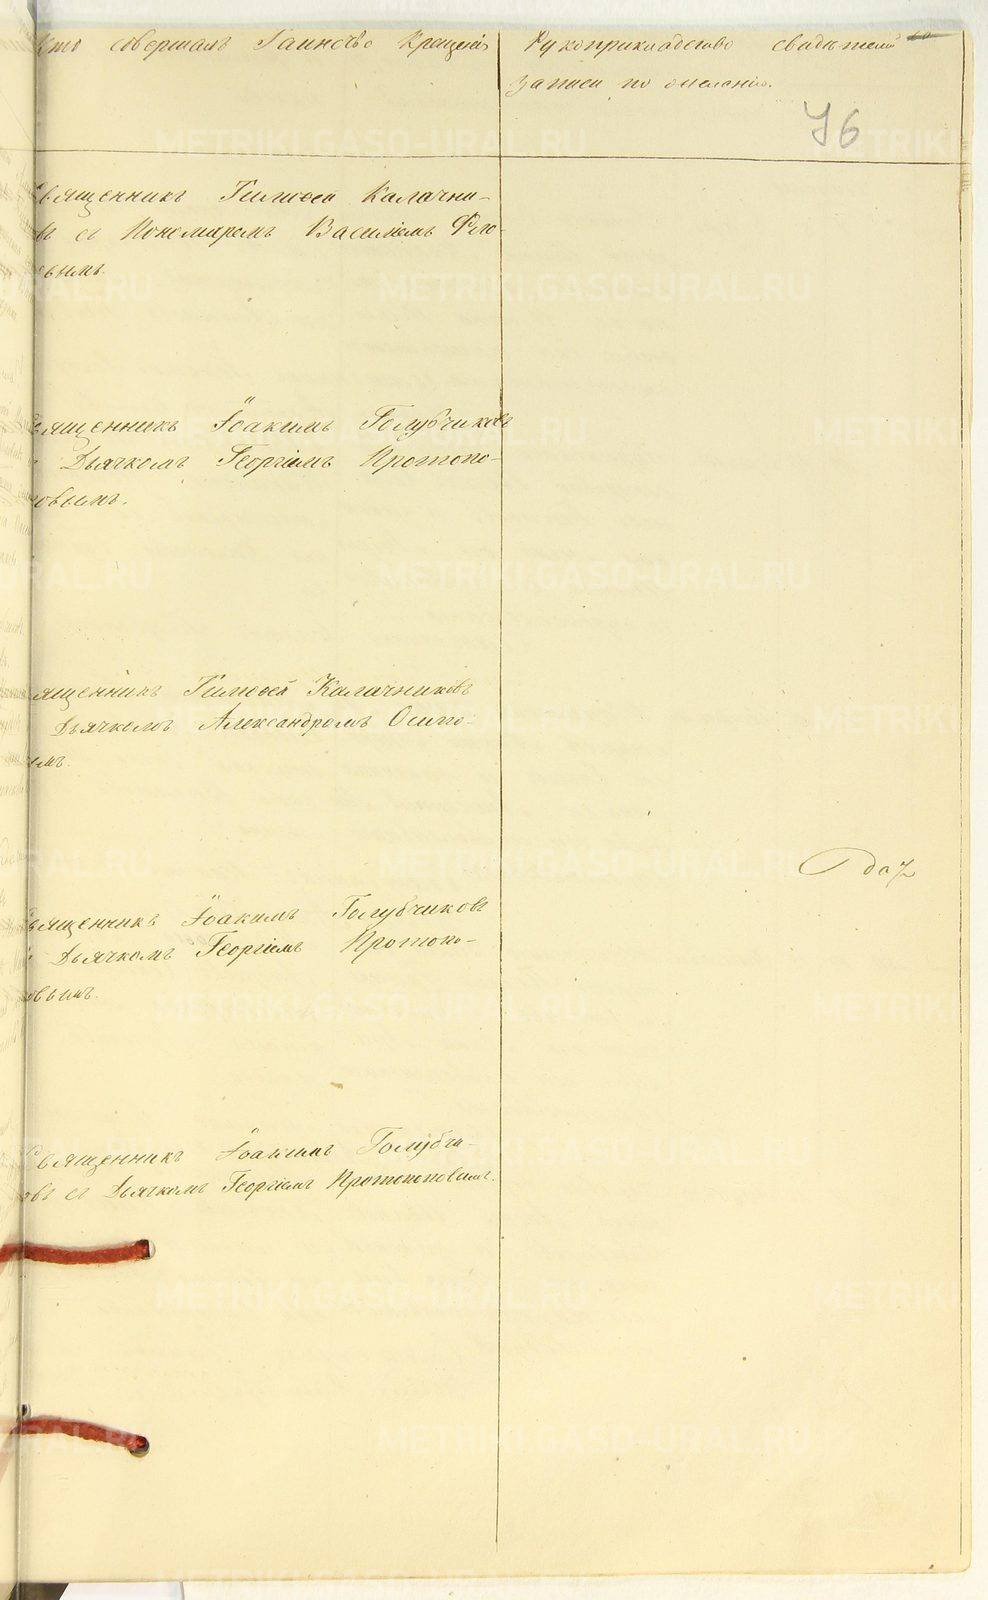 Кто совершалъ Таинство Крещенія
Рукоприкладство свидѣтелей
записи по желанію.
76
вященникъ Тимофей Калачни-
въ съ Пономаремъ Василіемъ Фло-
вымъ.
Священникъ Іоакимъ Голубчиковъ
Дьячкомъ Георгіемъ Протопо-
повымъ.
ященникъ Тимофей Калачниковъ
Дьячкомъ Александромъ Осипо-
ымъ.
Священникъ Іоакимъ Голубчиковъ
Дьячкомъ Георгіемъ Протопо-
повымъ.
Священникъ Іоакимъ Голубчи-
ковъ съ Дьячкомъ Георгіемъ Протопоповымъ.
METRIKI.GASO-URAL.RU